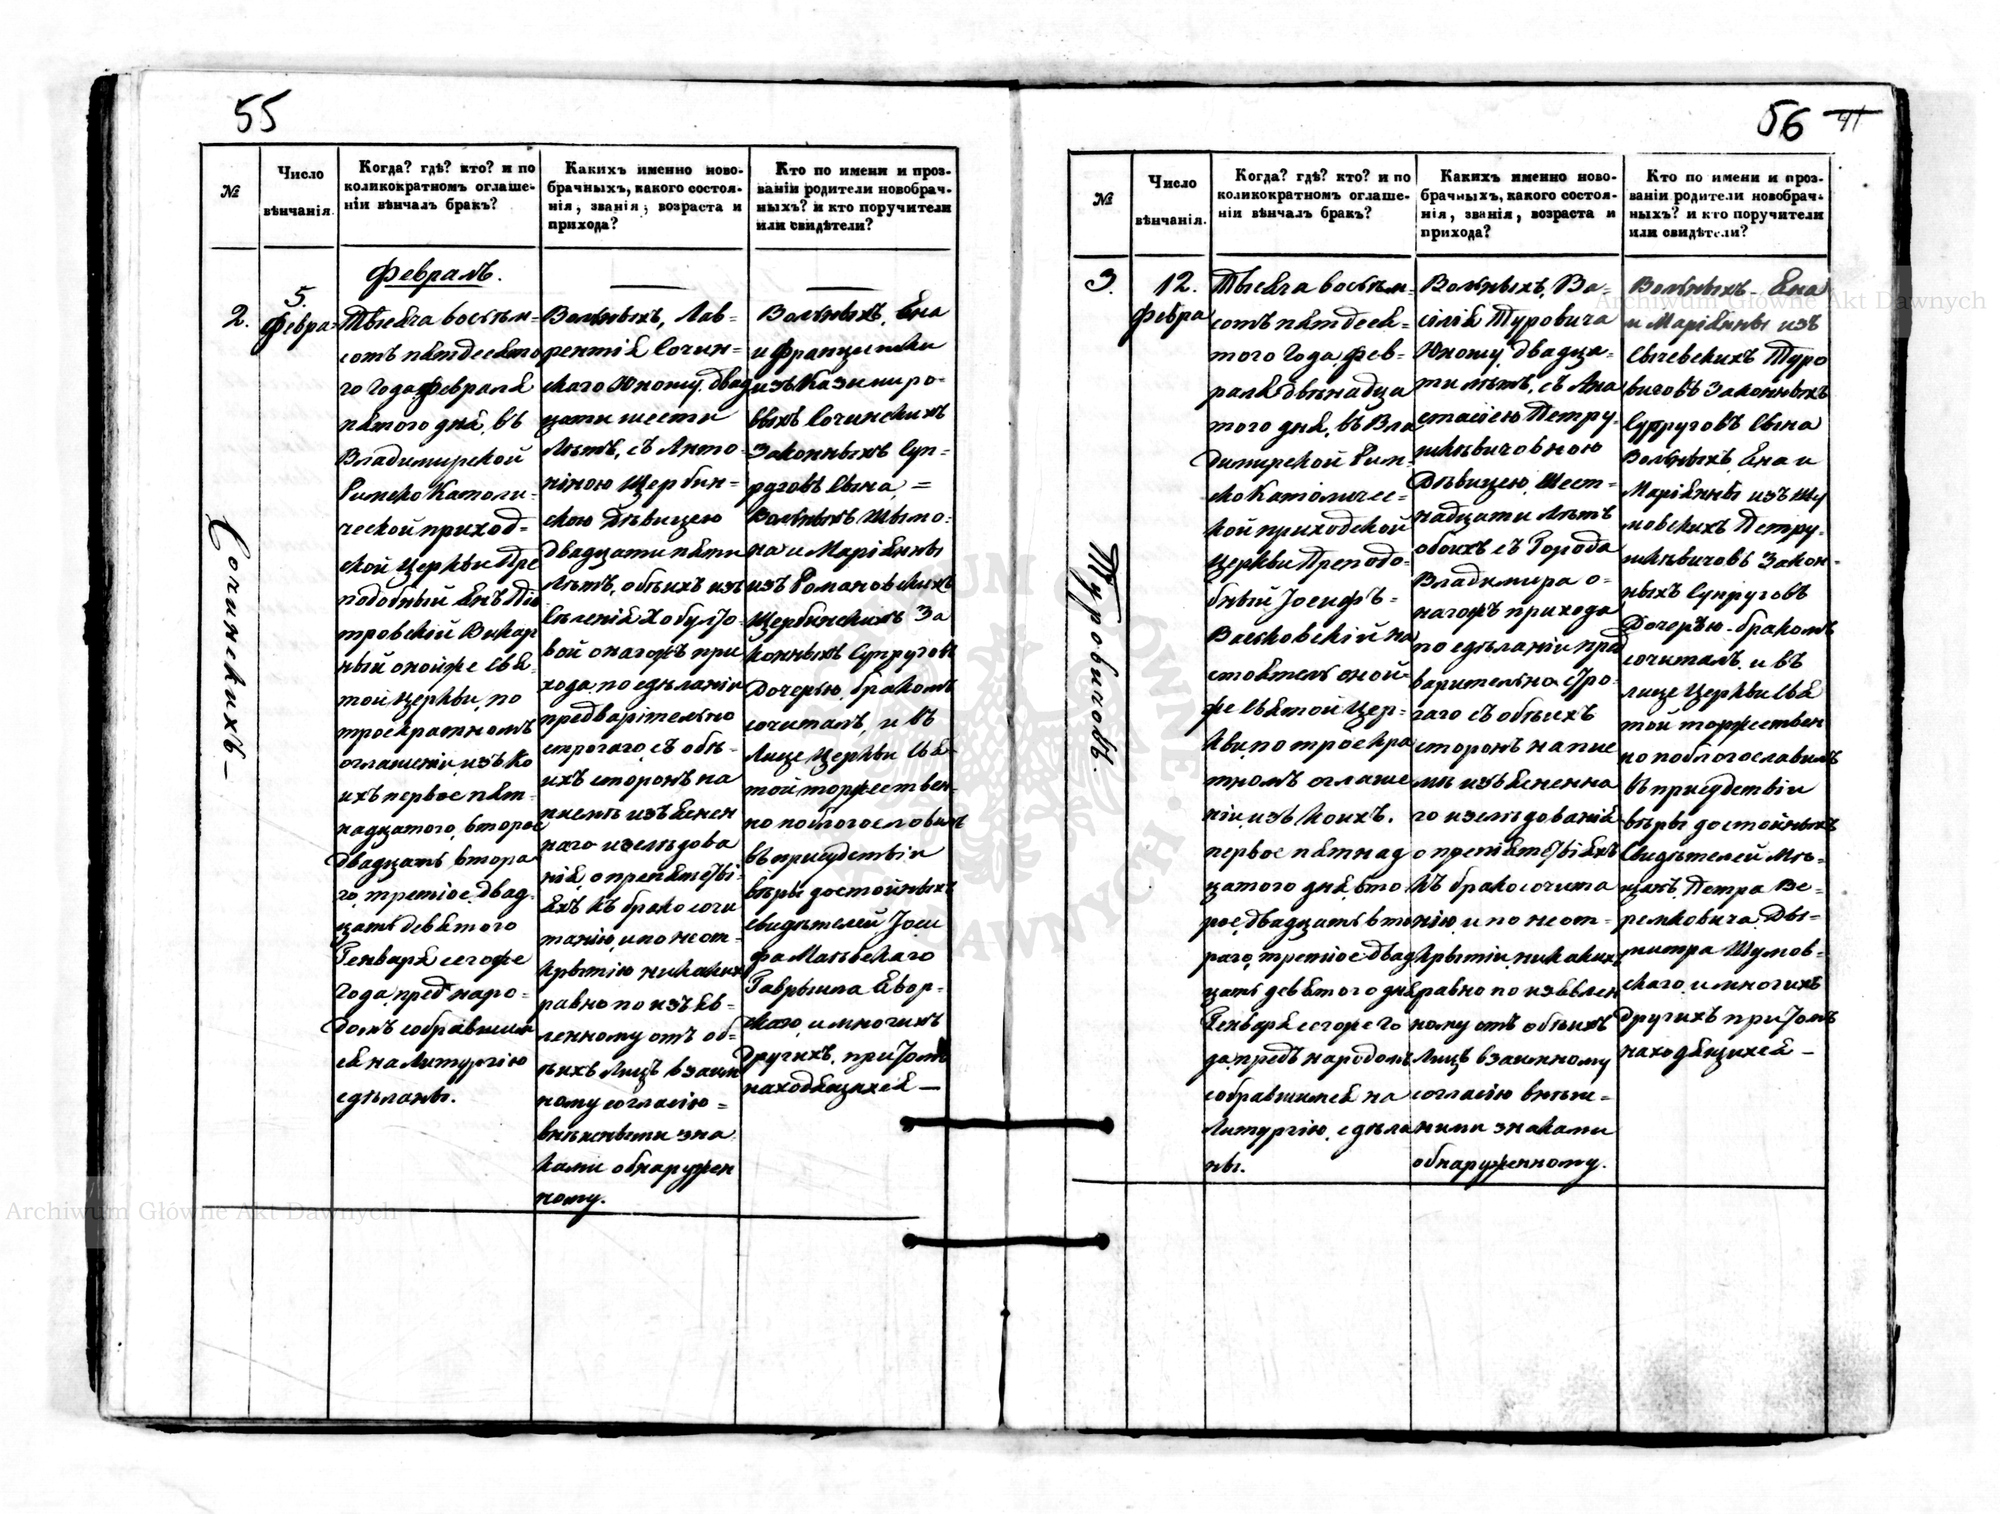 55
№
Число
вѣнчанія.
Когда? гдѣ? кто? и по
коликократномъ оглаше-
ніи вѣнчалъ бракъ?
Какихъ именно ново-
брачныхъ, какого состоя-
нія, званія, возраста и
прихода?
Кто по имени и проз-
ваніи родители новобрач-
ныхъ? и кто поручители
или свидѣтели?
2.
Сочинскихъ –
5.
Февра-
Февраль.
Тысяча восемь-
сотъ пятдесято
го года Февраля
пятого дня, въ
Владимирской
Римско Католи-
ческой приход-
ской Церкви Пре
подобный Янъ Піо
тровскій Викар
ный оной же Свя-
той Церкви, по
троекратномъ
оглашеніи, изъ ко
ихъ первое пят-
надцатого, второе
двадцать второ
го, третіое двад-
цать девятого
Генваря сего же
Года, предъ наро-
домъ собравшим
ся на Литургію
сдѣланы.
Вольныхъ, Лав-
рентія Сочин-
скаго Юношу, двад
цати шести
лѣтъ, съ Анто-
ніною Щербин-
скою Дѣвицею
двадцати пяти
лѣтъ, обѣихъ изъ
селенія Хобулто-
вой онагожъ при
хода, по сдѣланіи
предварительно
строгаго съ обѣ-
ихъ сторонъ на
письмѣ изъяснен
наго изслѣдова
нія о препятстві-
яхъ къ бракосочи
танію, и по неот-
крытію никакихъ
равно по изъяв-
ленному отъ об-
ѣихъ Лицъ взаим
ному согласію-
внѣшными зна
ками обнаружен
ному.
Вольныхъ, Яна
и Францишки
изъ Казимиро-
выхъ Сочинскихъ
Законныхъ Суп-
руговъ Сына, =
Вольныхъ Шымо-
на и Маріянны
изъ Романовскихъ
Щербинскихъ За
конныхъ Супруговъ
Дочерью, бракомъ
сочиталъ, и въ
лице Церкви Свя-
той торжествен-
но поблогословилъ
въ присудствіи
вѣры достойныхъ
Свидѣтелей Іоси
фа Мальскаго
Гаврыила Явор-
скаго, и многихъ
другихъ, при томъ
находящихся –
56
41
№
Число
вѣнчанія.
Когда? гдѣ? кто? и по
коликократномъ оглаше-
ніи вѣнчалъ бракъ?
Какихъ именно ново-
брачныхъ, какого состоя-
нія, званія, возраста и
прихода?
Кто по имени и проз-
ваніи родители новобрач-
ныхъ? и кто поручители
или свидѣтели?
3.
Туровичовъ.
12.
Февра
Тысяча восемь-
сотъ пятдеся-
того Года Фев-
раля двѣнадца
того дня, въ Вла
димирской Рим-
ско Католичес-
кой приходской
Церкви Преподо-
бный Іосифъ-
Васьковскій на
стоятель оной-
же Святой Цер-
кви, по троекра
тномъ оглаше
ніи, изъ коихъ.
первое пятнад
цатого дня, вто
рое, двадцать вто
раго, третіое двад
цать девятого дня
Генваря сего же го
да, предъ народомъ
собравшимся на
Литургію, сдѣла
ны.
Вольныхъ, Ва-
силія Туровича
Юношу двадца-
ти лѣтъ, съ Ана
стасіею Петру-
шкѣвичовною
Дѣвицею, Шест-
надцати лѣтъ
обоихъ съ Города
Владимира о-
нагожъ прихода
по сдѣланіи пред
варительно стро-
гаго съ обѣихъ
сторонъ на пис
мѣ изъясненна
го изслѣдованія
о препятствіяхъ
къ бракосочита
нію, и по неот-
крытіи, никакихъ
равно по изъявлен
ному отъ обѣихъ
Лицъ взаимному
согласію внѣш-
ними знаками
обнаруженному.
Вольныхъ – Яна
и Маріянны изъ
Сычевскихъ Туро
вичовъ Законныхъ
Супруговъ Сына
Вольныхъ, Яна и
Маріянны изъ Шу
мовскихъ Петру-
шкѣвичовъ Закон-
ныхъ Супруговъ
Дочерью – бракомъ
сочиталъ, и въ
лице Церкви Свя
той торжествен
но поблогославилъ
въ присудствіи
вѣры достойныхъ
Свидѣтелей Мѣ-
щанъ, Петра Ве-
ремковича, Ды-
митра Шумов-
скаго, и многихъ
другихъ при томъ
находящихся –
Archiwum Główne Akt Dawnych
Archiwum Główne Akt Dawnych